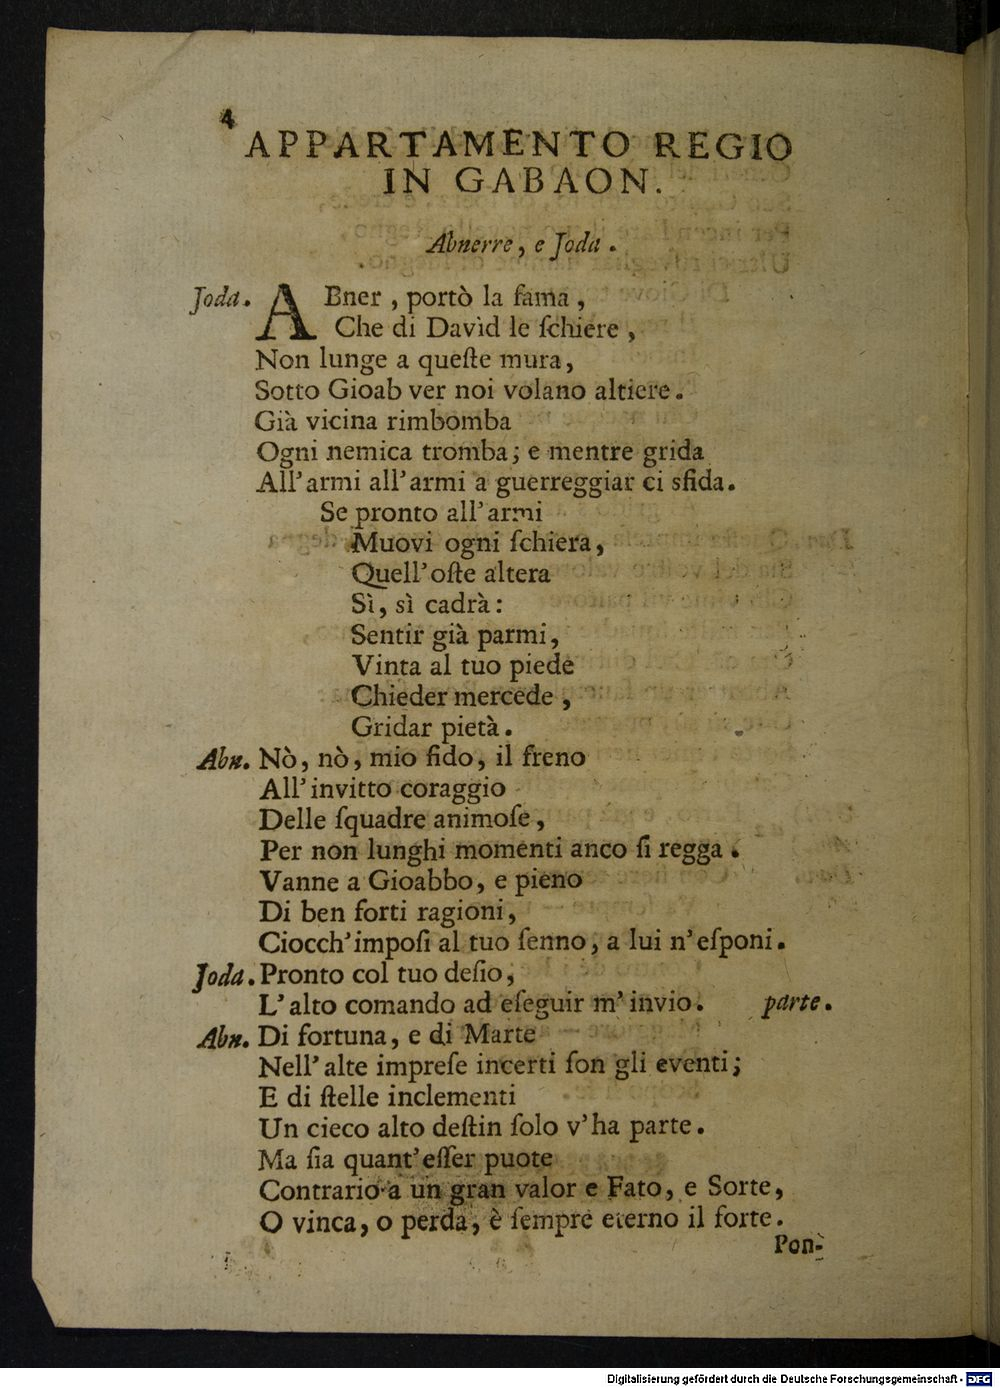 4
APPARTAMENTO REGIO
IN GABAON.
Abnerre, e Joda.
Joda. ABner, portò la fama,
Che di Davìd le ſchiere,
Non lunge a queſte mura,
Sotto Gioab ver noi volano altiere.
Già vicina rimbomba
Ogni nemica tromba; e mentre grida
All'armi all'armi a guerreggiar ci sfida.
Se pronto all'armi
Muovi ogni ſchiera,
Quell'oſte altera
Sì, sì cadrà:
Sentir già parmi,
Vinta al tuo piede
Chieder mercede,
Gridar pietà.
Abn. Nò, nò, mio fido, il freno
All'invitto coraggio
Delle ſquadre animoſe,
Per non lunghi momenti anco ſi regga.
Vanne a Gioabbo, e pieno
Di ben forti ragioni,
Ciocch'impoſi al tuo ſenno, a lui n'eſponi.
Joda. Pronto col tuo deſio,
L'alto comando ad eſeguir m'invio. parte.
Abn. Di fortuna, e di Marte
Nell'alte impreſe incerti ſon gli eventi;
E di ſtelle inclementi
Un cieco alto deſtin ſolo v'ha parte.
Ma ſia quant'eſſer puote
Contrario a un gran valor e Fato, e Sorte,
O vinca, o perda, è ſempre eterno il forte.
Pon-
Digitalisierung gefördert durch die Deutsche Forschungsgemeinschaft - DFG